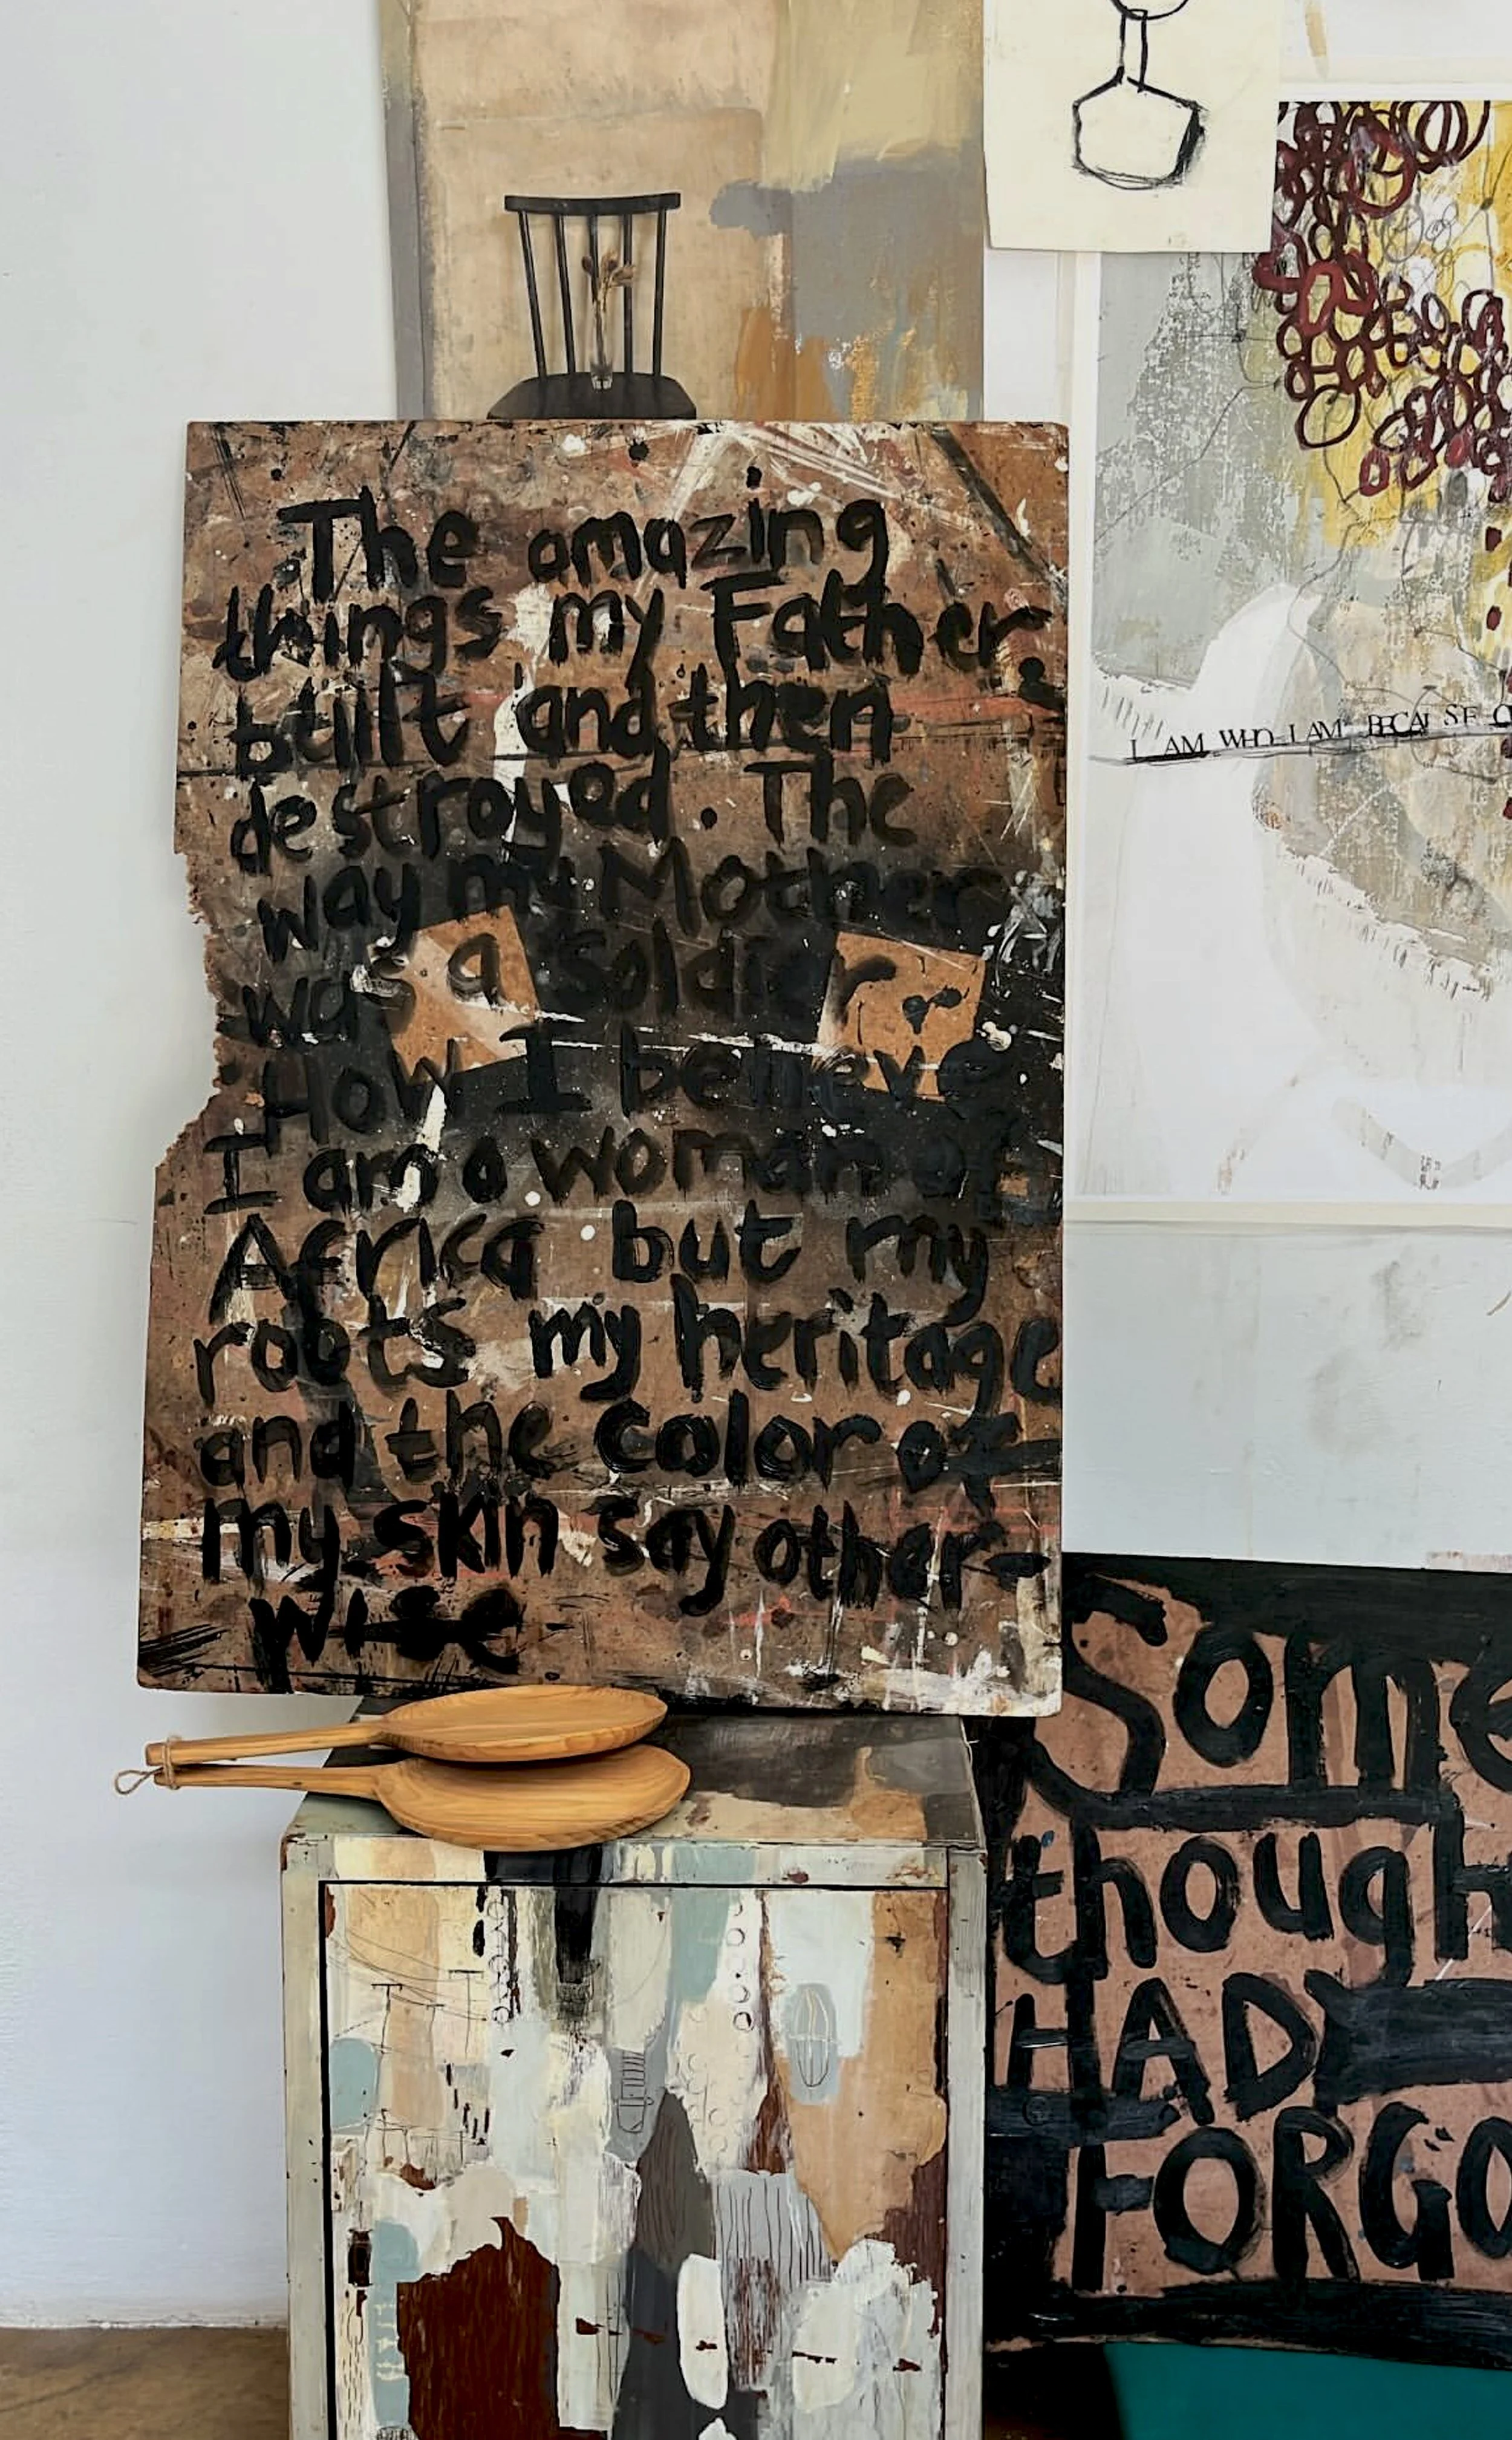 The amazing
things my Father
built and then
destroyed. The
way my Mother
was a soldier
How I believe
I am a woman of
Africa but my
roots my heritage
and the color of
my skin say other-
wise
I AM WHO I AM BECAUSE O
Some
though
HAD
FORGO